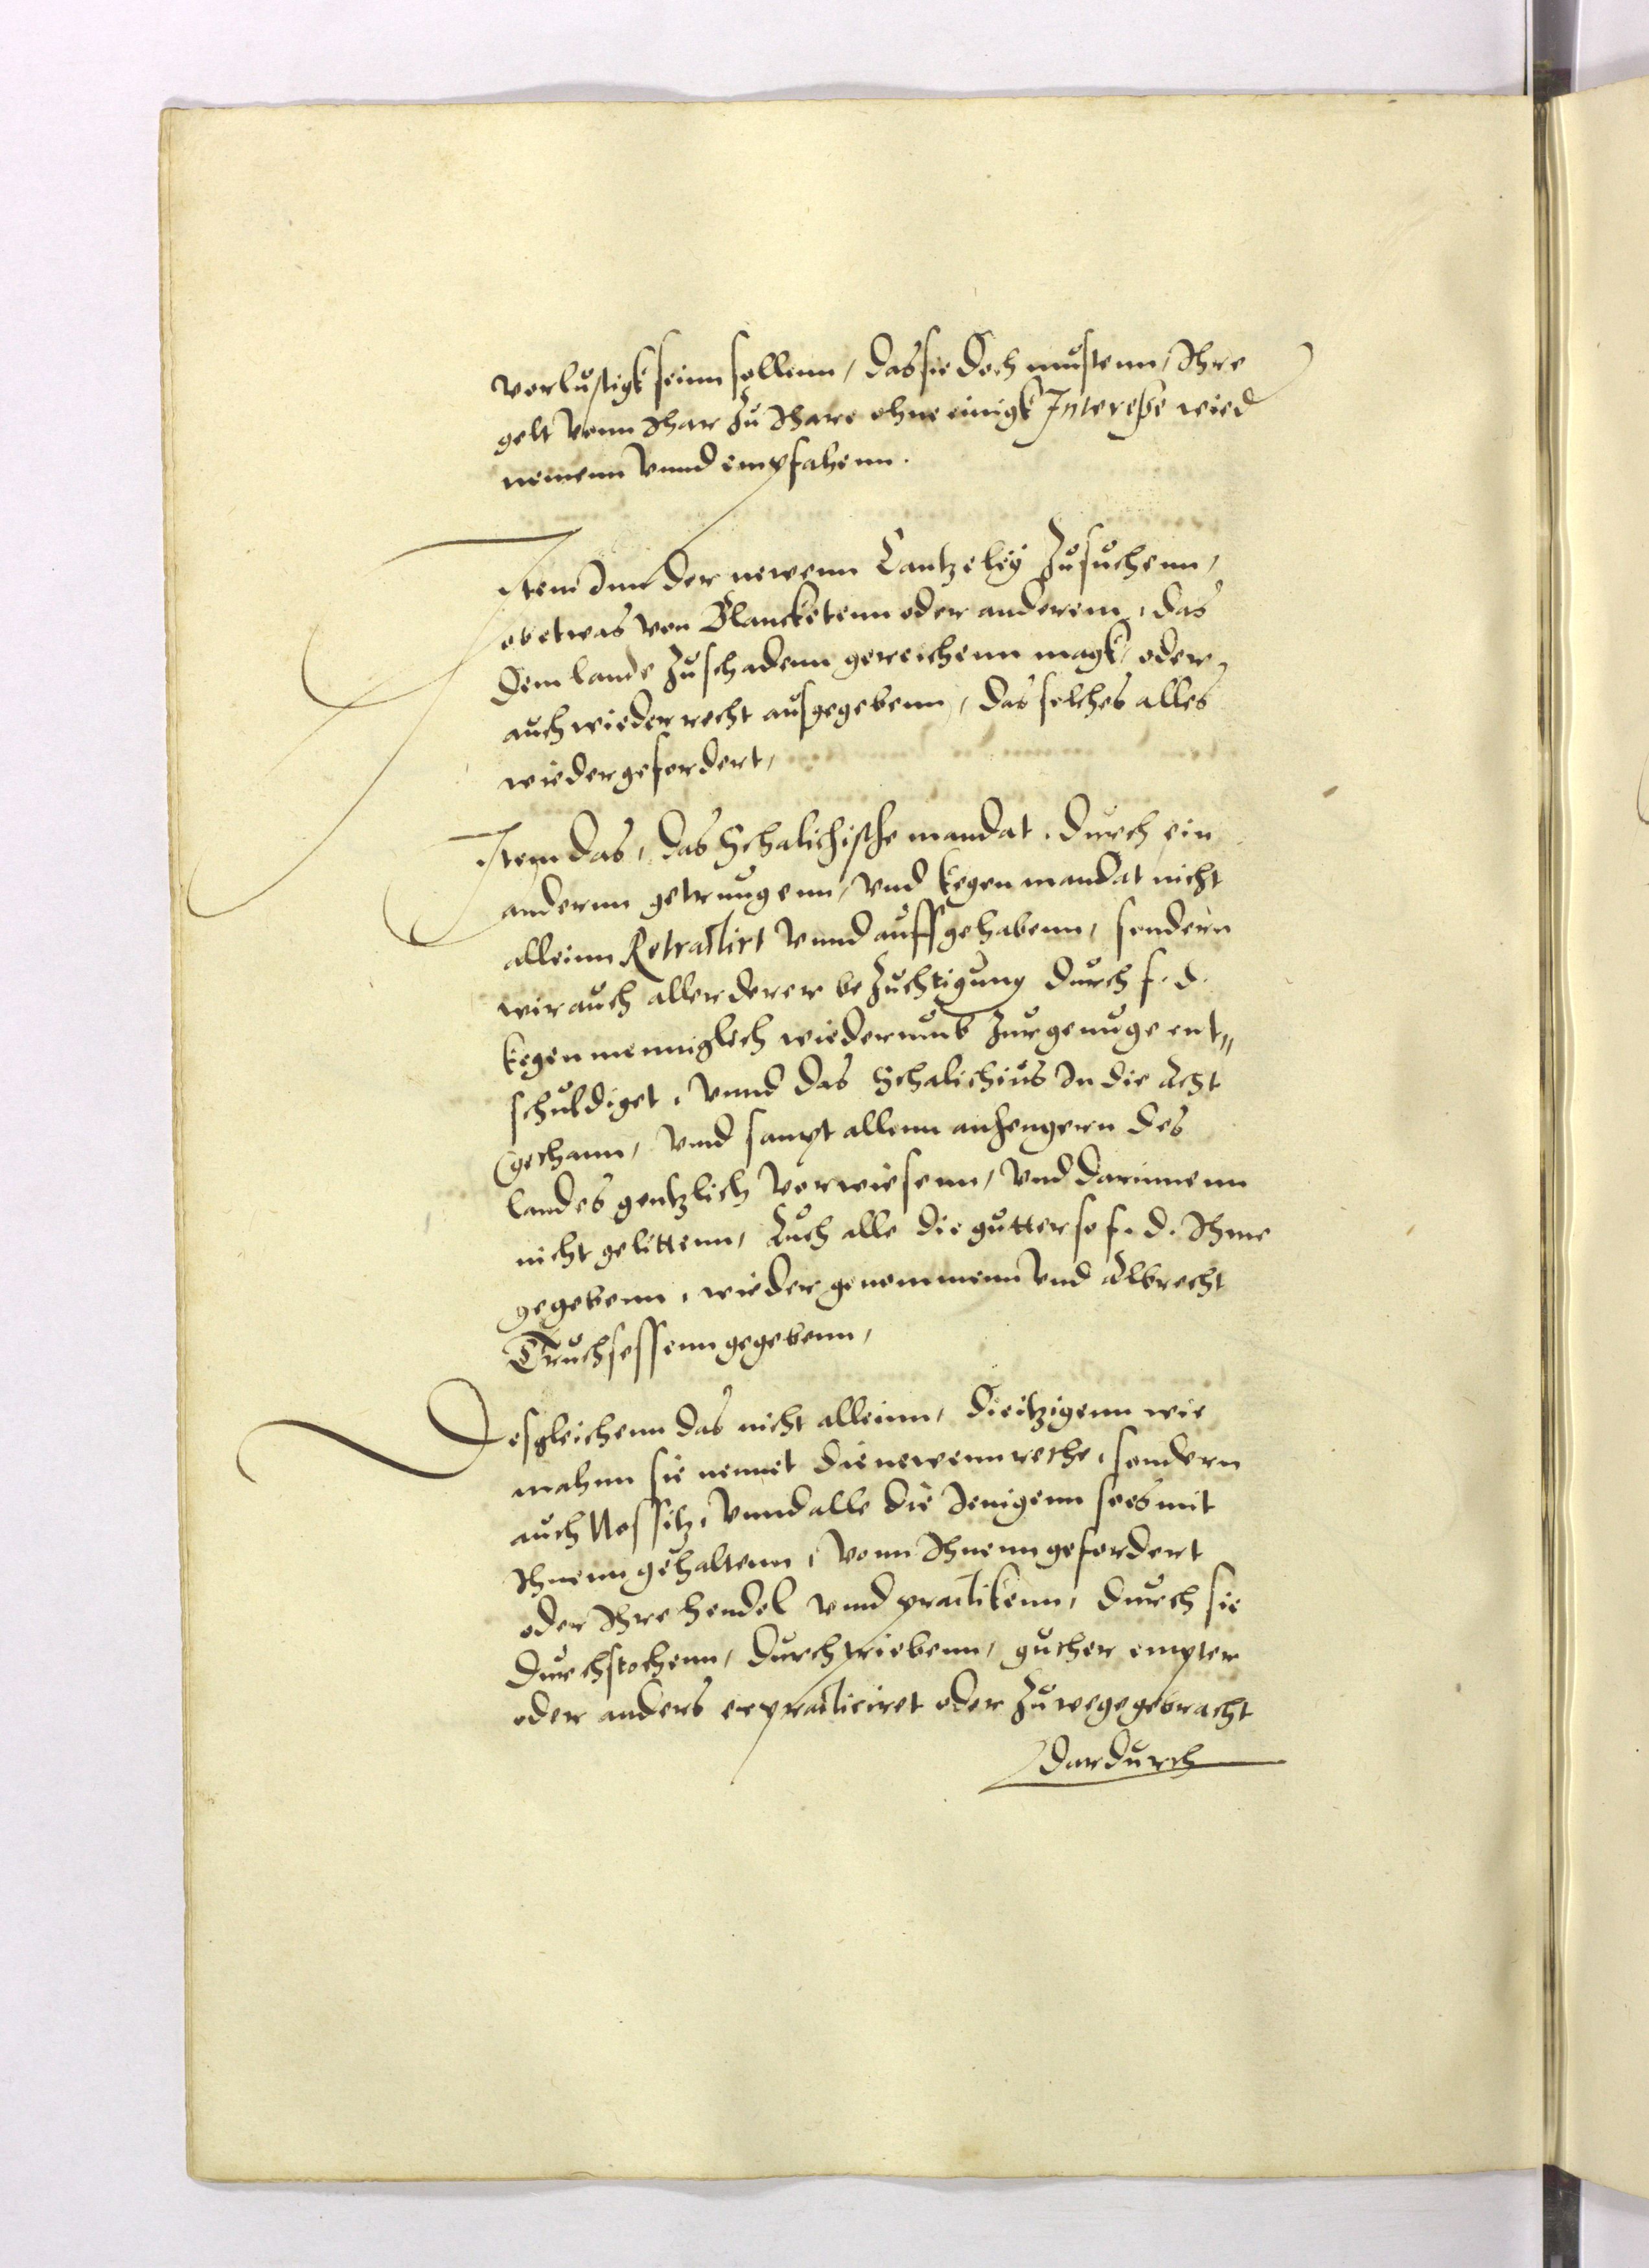 vorlustigk seinn sollenn, das sie doch mustenn, Ihre
gelt vonn Ihar zu Ihare ohne einigk Interesse wied
nemenn vnnd empfahenn.
Item Inn der newenn Cantzeley zu suchenn,
ob etwas von Blancketenn oder anderem, das
dem lande zu schadenn gereichenn magk, oder
auch wieder recht ausgegebenn, das solches alles
wieder gefordert,
Item das, das Schalichische mandat, durch ein
andernn getrungenn, vnd kegen mandat nicht
alleinn Retractirt vnnd auffgehabenn, sondern
wir auch aller derer bezuchtigung durch f. d.
kegen menniglich wiederumb zur genuge ent„
schuldiget, vnnd das Schalichius In die Acht
gethann, vnnd sampt allenn anhengern des
landes gentzlich vorwiesenn, vnd darinnenn
nicht gelittenn, Auch alle die gutter so f. d. Ihme
gegebenn, wieder genommenn vnd Albrecht
Truchsessenn gegebenn,
Desgleichenn das nicht alleinn, die itzigenn wie
mahnn sie nennet die newenn rethe, sondern
auch Nossitz, vnnd alle die Jenigenn so es mit
Ihnenn gehaltenn, vonn Ihnenn gefordert
oder Ihre hendel vnnd practikenn, durch sie
durchstochenn, durchtriebenn, guther empter
oder anders erpracticiret oder zu wege gebracht
dardurch